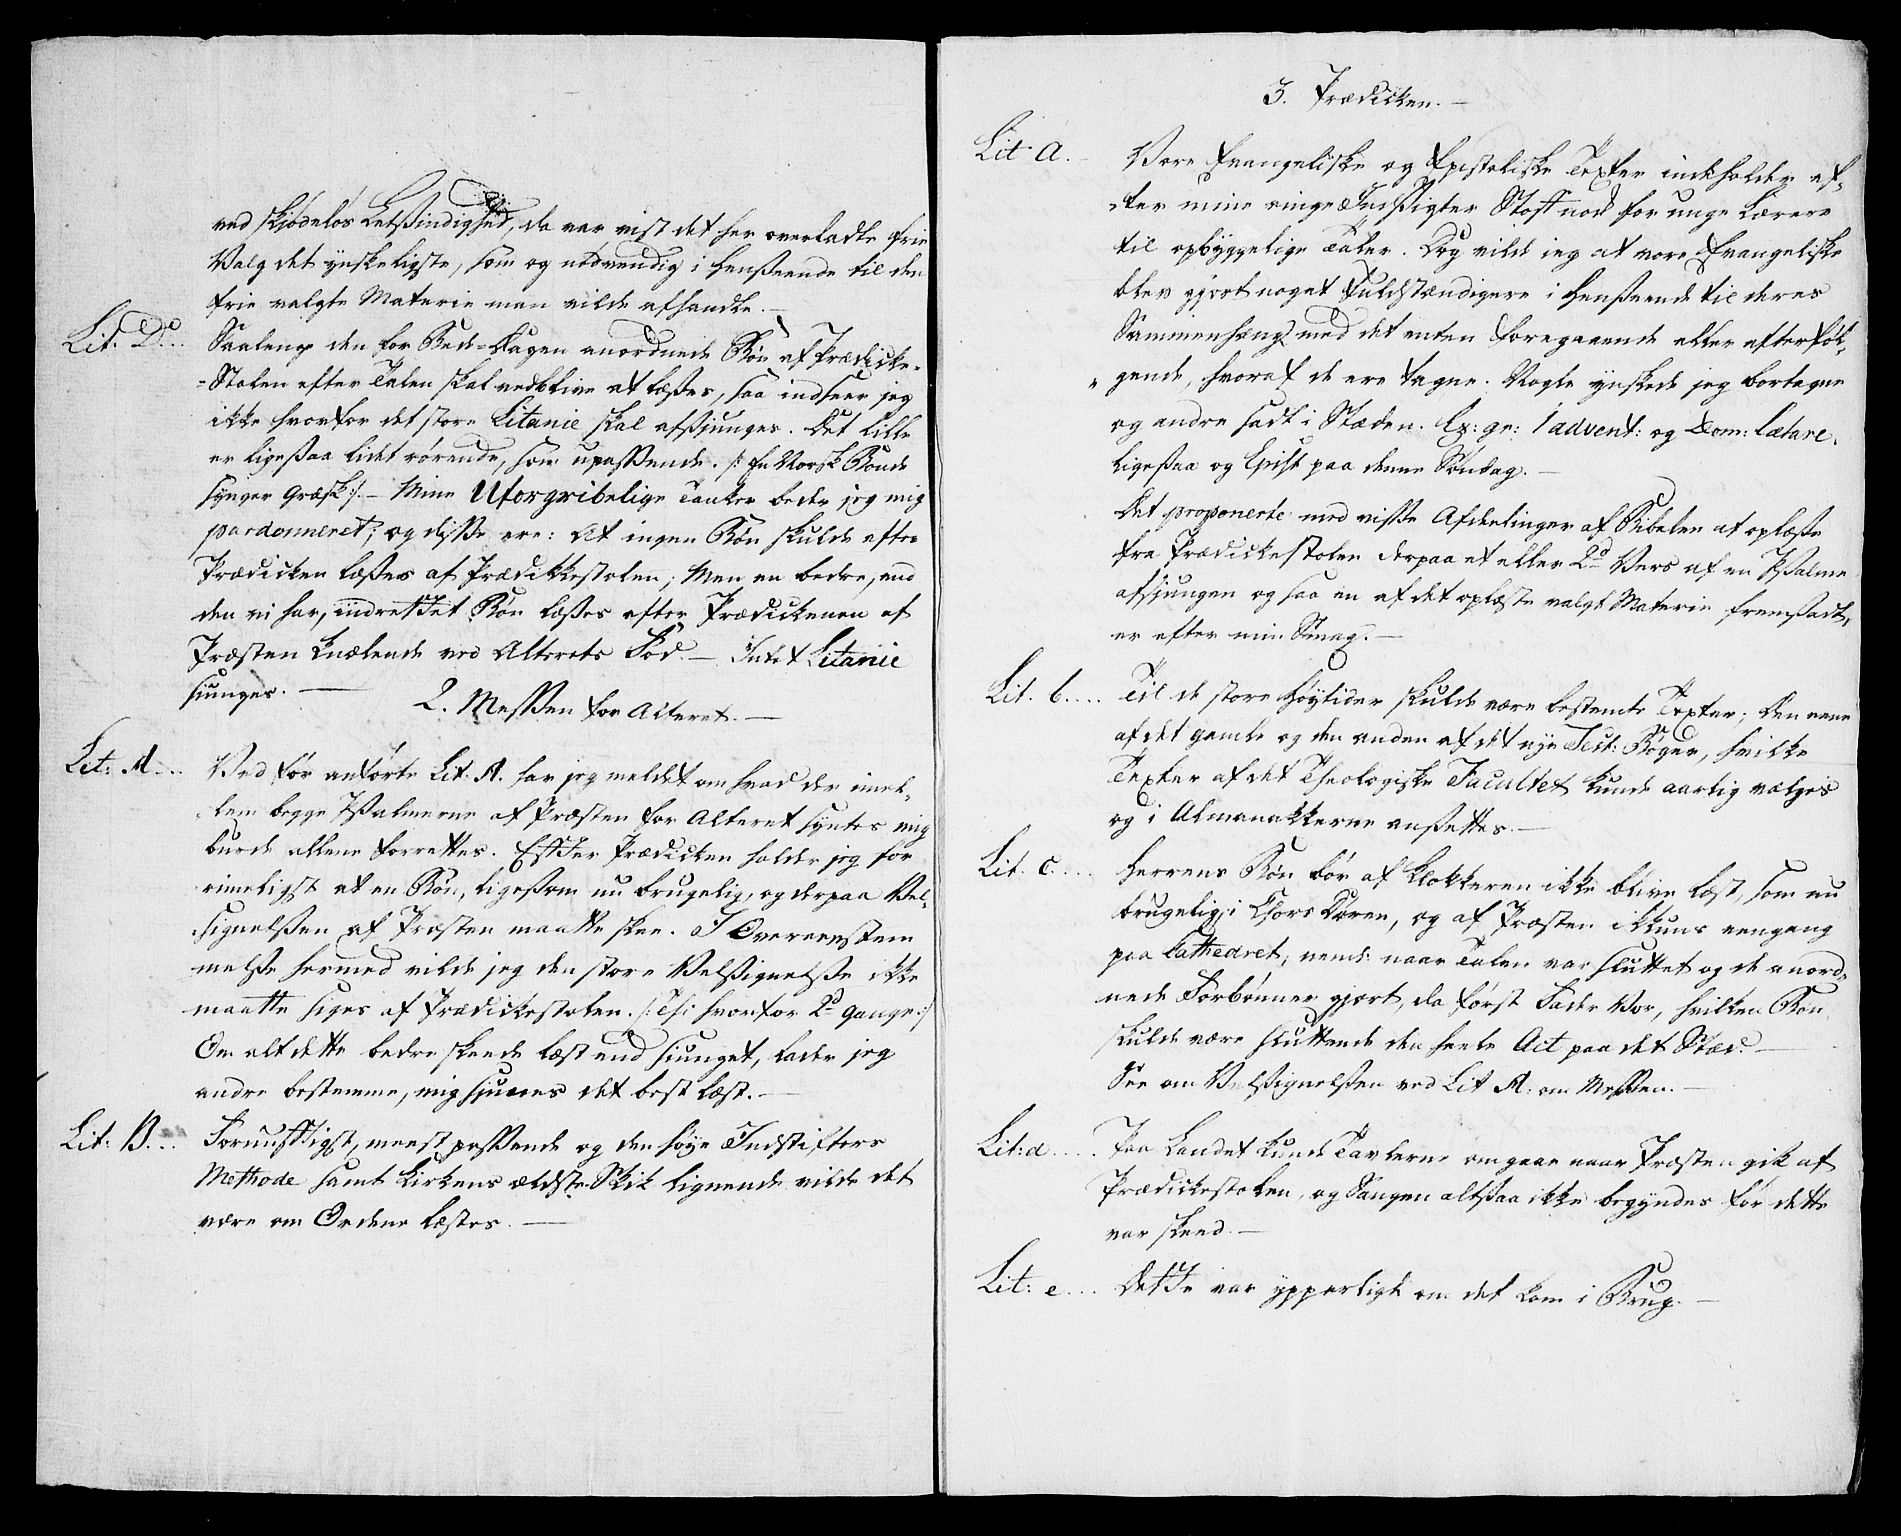 ved skiødeløs Letsindighed, da var vist det her overladte frie
Valg det ynskeligste, som og nødvendig i Henseende til den
frie valgte Materie man vilde afhandle. —
Lit. D... Saalenge den for Bede-Dagen anordnede Bøn af Prædicke-
-Stolen efter Talen skal vedblive at læses, saa indseer jeg
ikke hvorfor det store Litanie skal afsjunges. Det lille
er ligesaa lidet rørende, som upassende. /: En Norsk Bonde
synger Græsk :/. — Mine Uforgribelige Tanker beder jeg mig
pardonneret; og disse ere: At ingen Bøn skulde efter
Prædicken læses af Prædikkestolen; Men en bedre, end
den vi har, indrettet Bøn læses efter Prædickenen af
Præsten knælende ved Alterets Fod. — Intet Litanie
siunges. —
2. Messen for Alteret. —
Lit: A... Ved før anførte Lit. A. har jeg meldet om hvad der imel-
lem begge Psalmerne af Præsten for Alteret syntes mig
burde allene forrettes. Efter Prædicken holder jeg for
rimeligst at en Bøn, ligesom nu brugelig, og derpaa Vel-
signelsen af Præsten maatte skee. I Overeenstem
melse hermed vilde jeg den store Velsignelse ikke
maatte siges af Prædickestolen. /: Thi hvorfor 2de gange :/
Om alt dette bedre skeede læst end siunget, lader jeg
andre bestemme, mig synes det best læst. —
Lit: B... Fornuftigst, meest passende og den høye Indstifters
Methode samt Kirkens ældste Skik lignende vilde det
være om Ordene læstes. —
3. Prædicken. —
Lit a. Vore Evangeliske og Epistoliske Texter indeholder ef-
-ter mine ringe Indsigter Stoff nok for unge Lærere
til opbyggelige Taler. Dog vilde jeg at vore Evangeliske
blev gjort noget Fuldstændigere i Henseende til deres
Sammenhæng med det enten foregaaende eller efterføl-
gende, hvoraf de ere tagne. Nogle ynskede jeg borttagne
og andre sadt i Stæden. Ex: gr: 1 advent: og Dom: lætare.
ligesaa og Epist paa denne Søndag. —
Det proponerte med visse Afdelinger af Bibelen at oplæse
fra Prædickestolen derpaa et eller 2de Vers af en Psalme
afsjungen og saa en af det oplæste valgt Materie fremsadt,
er efter min Smag. —
Lit. b.... Til de store Høytider skulde være bestemte Texter; Den eene
af det gamle og den anden af det nye Test: Bøger, hvilke
Texter af det Theologiske Facultet kunde aarlig vælges
og i Almanakkerne ansettes. —
Lit. c.... Herrens Bøn bør af Klokkeren ikke blive læst, som nu
brugelig, i Chors Døren, og af Præsten ikkuns eengang
paa Cathedret, neml: naar Talen var sluttet og de anord-
nede Forbønner gjort, da først Fader Vor, hvilken Bøn
skulde være sluttende den heele Act paa det Stæd. —
See om Velsignelsen ved Lit A. om Messen. —
Lit: d.... Paa Landet kunde Tavlerne omgaae naar Præsten gik af
Prædickestolen, og Sangen altsaa ikke begyndes før dette
var skeed. —
Lit: e... Dette var ypperligt om det kom i Brug. —